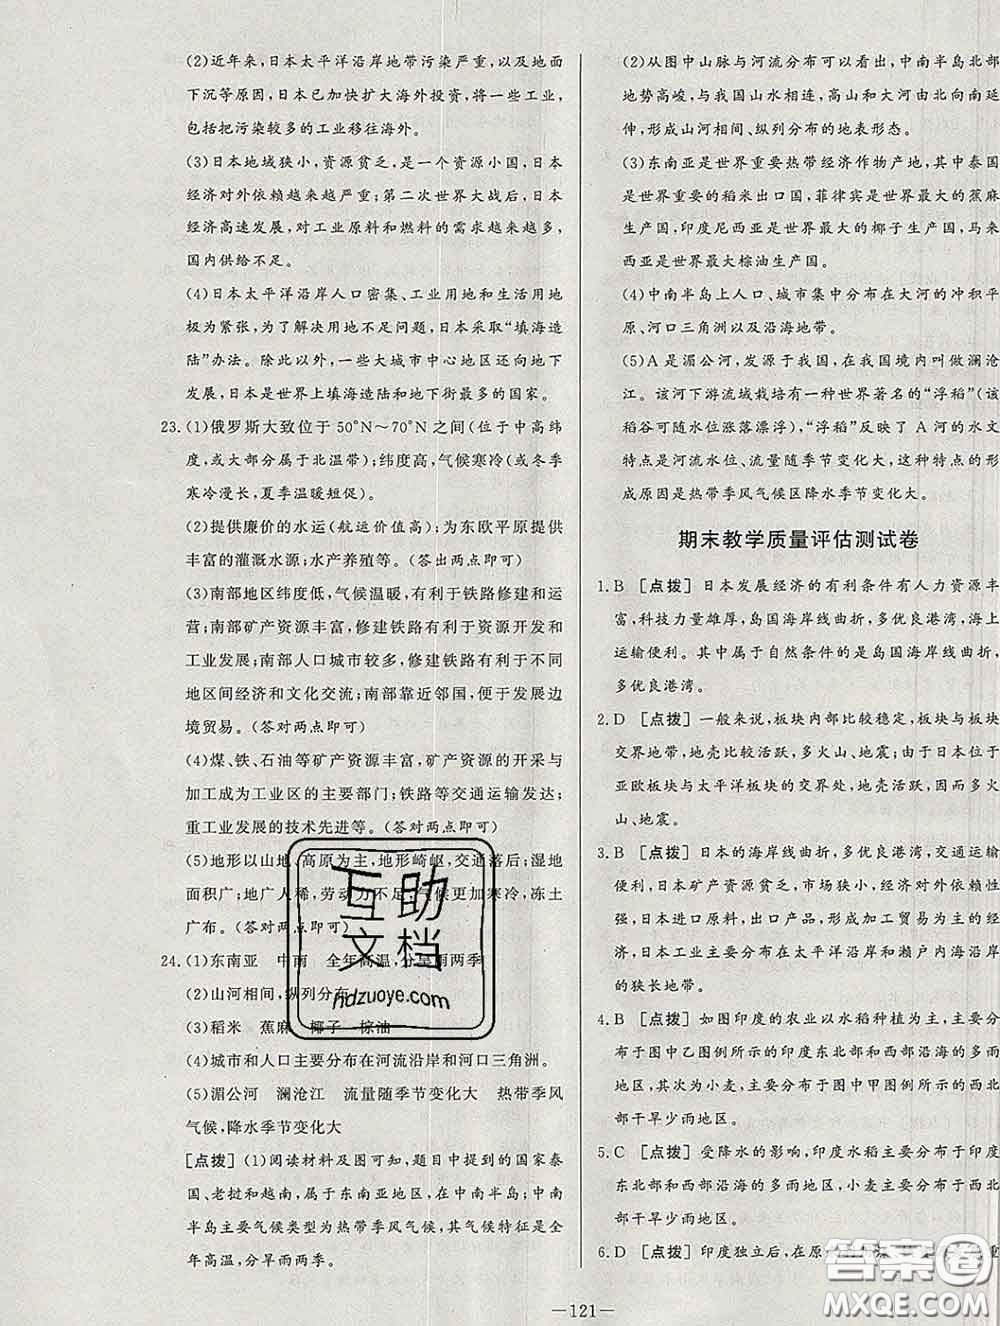 (2)近年来,日本太平洋沿岸地带污染严重,以及地面
下沉等原因,日本已加快扩大海外投资,将一些工业,
包括把污染较多的工业移往海外。
(3)日本地域狭小,资源贫乏,是一个资源小国,日本
经济对外依赖越来越严重;第二次世界大战后,日本
经济高速发展,对工业原料和燃料的需求越来越多,
国内供给不足。
(4)日本太平洋沿岸人口密集、工业用地和生活用地
极为紧张,为了解决用地不足问题,日本采取“填海造
陆”办法。除此以外,一些大城市中心地区还向地下
发展,日本是世界上填海造陆和地下街最多的国家。
23.(1)俄罗斯大致位于50°N～70°N之间(位于中高纬
度,或大部分属于北温带);纬度高,气候寒冷(或冬季
寒冷漫长,夏季温暖短促)。
(2)提供廉价的水运(航运价值高);为东欧平原提供
丰富的灌溉水源;水产养殖等。(答出两点即可)
(3)南部地区纬度低,气候温暖,有利于铁路修建和运
营;南部矿产资源丰富,修建铁路有利于资源开发和
工业发展;南部人口城市较多,修建铁路有利于不同
地区间经济和文化交流;南部靠近邻国,便于发展边
境贸易。(答对两点即可)
(4)煤、铁、石油等矿产资源丰富,矿产资源的开采与
加工成为工业区的主要部门;铁路等交通运输发达;
重工业发展的技术先进等。(答对两点即可)
(5)地形以山地、高原为主,地形崎岖,交通落后;湿地
面积广;地广人稀,劳动力不足;气候更加寒冷,冻土
广布。(答对两点即可)
24.(1)东南亚 中南 全年高温,分旱雨两季
(2)山河相间,纵列分布
(3)稻米 蕉麻 椰子 棕油
(4)城市和人口主要分布在河流沿岸和河口三角洲。
(5)湄公河 澜沧江 流量随季节变化大 热带季风
气候,降水季节变化大
[点拨](1)阅读材料及图可知,题目中提到的国家泰
国、老挝和越南,属于东南亚地区,在中南半岛;中南
半岛主要气候类型为热带季风气候,其气候特征是全
年高温,分旱雨两季。
(2)从图中山脉与河流分布可以看出,中南半岛北部
地势高峻,与我国山水相连,高山和大河由北向南延
伸,形成山河相间、纵列分布的地表形态。
(3)东南亚是世界重要热带经济作物产地,其中泰国
是世界重要的稻米出口国,菲律宾是世界最大的蕉麻
生产国,印度尼西亚是世界最大的椰子生产国,马来
西亚是世界最大棕油生产国。
(4)中南半岛上人口、城市集中分布在大河的冲积平
原、河口三角洲以及沿海地带。
(5)A是湄公河,发源于我国,在我国境内叫做澜沧
江。该河下游流域栽培有一种世界著名的“浮稻”(该
稻谷可随水位涨落漂浮),“浮稻”反映了A河的水文
特点是河流水位、流量随季节变化大,这种特点的形
成原因是热带季风气候区降水季节变化大。
期末教学质量评估测试卷
1.B [点拨]日本发展经济的有利条件有人力资源丰
富,科技力量雄厚,岛国海岸线曲折,多优良港湾,海上
运输便利。其中属于自然条件的是岛国海岸线曲折,
多优良港湾。
2.D [点拨]一般来说,板块内部比较稳定,板块与板块
交界地带,地壳比较活跃,多火山、地震;由于日本位于
亚欧板块与太平洋板块的交界处,地壳活跃,因此多火
山、地震。
3.B [点拨]日本的海岸线曲折,多优良港湾,交通运输
便利,日本矿产资源贫乏,市场狭小,经济对外依赖性
强,日本进口原料,出口产品,形成加工贸易为主的经
济,日本工业主要分布在太平洋沿岸和濑户内海沿岸
的狭长地带。
4.B [点拨]如图印度的农业以水稻种植为主,主要分
布于图中乙图例所示的印度东北部和西部沿海的多雨
地区,其次为小麦,主要分布于图中甲图例所示的西北
部干旱少雨地区。
5.C [点拨]受降水的影响,印度水稻主要分布在印度
东北部和西部沿海的多雨地区,小麦主要分布在西北
部干旱少雨地区。
6.D [点拨]印度独立后,在原
—121—
互助
文档
hdzuoye.com
答案圈
MXQE.COM